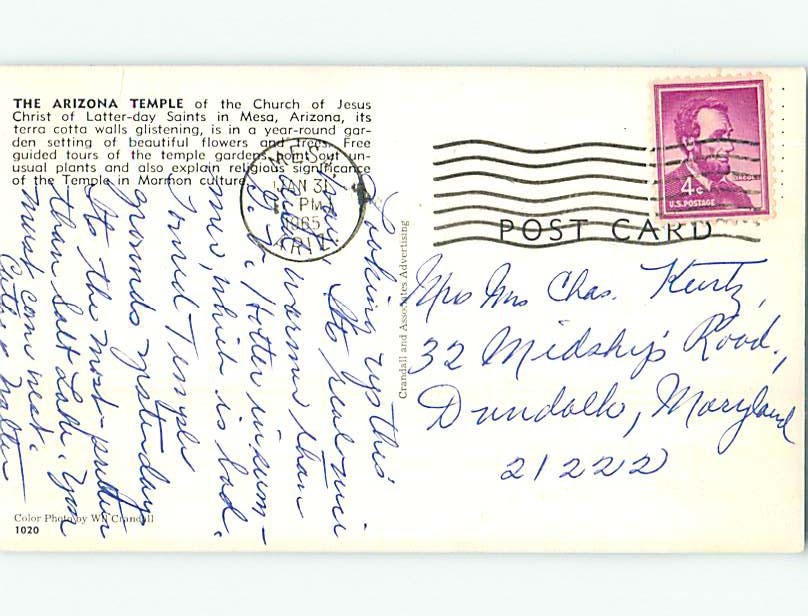 THE ARIZONA TEMPLE of the Church of Jesus
Christ of Latter-day Saints in Mesa, Arizona, its
terra cotta walls glistening, is in a year-round gar-
den setting of beautiful flowers and trees. Free
guided tours of the temple gardens point out un-
usual plants and also explain religious significance
of the Temple in Mormon culture.
Looking up this
Its real nice
warmer than
Hotter in sum-
mer, which is bad.
Toured Temple
grounds yesterday
Its the most prettier
than Salt Lake. You
must come next.
Color Photo by W Crandall
1020
Crandall and Associates Advertising
MESA
JAN 31
PM
1965
ARIZ.
4c
LINCOLN
U.S. POSTAGE
POST CARD
Chas. Kurtz,
32 Midship's Road,
Dundalk, Maryland
21222